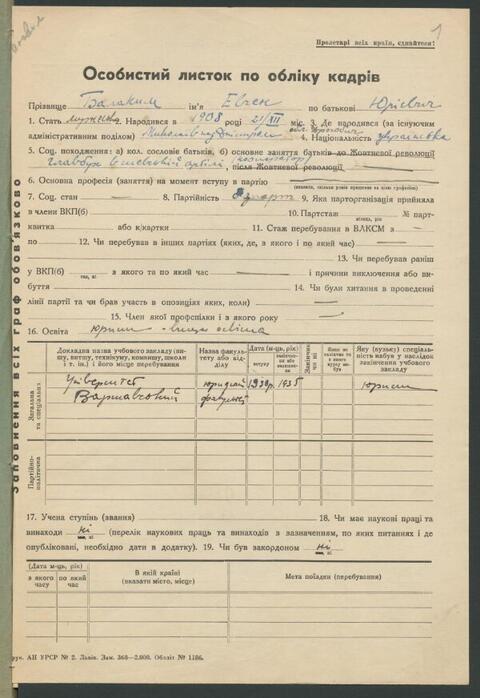 1
Пролетарі всіх країн, єднайтеся!
Особистий листок по обліку кадрів
Прізвище Балаким ім'я Евген по батькові Юрієвич
1. Стать 2. Народився в 1908 році 21/XII міс. 3. Де народився (за існуючим
адміністративним поділом) 4. Національність українська
5. Соц. походження: а) кол. сословіе батьків, б) основне заняття батьків до Жовтневої революції
після Жовтневої революції
6. Основна професія (заняття) на момент вступу в партію —
7. Соц. стан — 8. Партійність б/парт 9. Яка парторганізація прийняла
в члени ВКП(б) 10. Партстаж № парт-
квитка або к/картки 11. Стаж перебування в ВЛКСМ з —
по — 12. Чи перебував в інших партіях (яких, де, з якого і по який час) —
13. Чи перебував раніш
у ВКП(б) з якого та по який час — і причини виключення або ви-
буття 14. Чи були хитання в проведенні
лінії партії та чи брав участь в опозиціях яких, коли) —
15. Член якої профспілки і з якого року —
16. Освіта юрист — вища освіта
Докладна назва учбового закладу (ви-
шу, витшу, технікуму, комвишу, школи
і т. ін.) і його місце перебування
Назва факуль-
тету або від-
ділу
Дата (м-ць, рік)
вступу
Закінчив
чи ні
Яку (вузьку) спеціаль-
ність набув у наслідок
закінчення учбового
закладу
Загальна
та спеціальна
Університет
Варшавський
юридичний
факультет
1930р. 1935
юрист
Партійно-
політична
17. Учена ступінь (звання) 18. Чи має наукові праці та
винаходи ні (перелік наукових праць та винаходів з зазначенням, по яких питаннях і де
опубліковані, необхідно дати в додатку). 19. Чи був закордоном ні
Дата (м-ць, рік)
з якого часу
по який час
В якій країні
(вказати місто, місце)
Мета поїздки (перебування)
Заповнення всіх граф обов'язково
Друк. АН УРСР № 2. Львів. Зам. 368—2.000. Обліт № 1186.